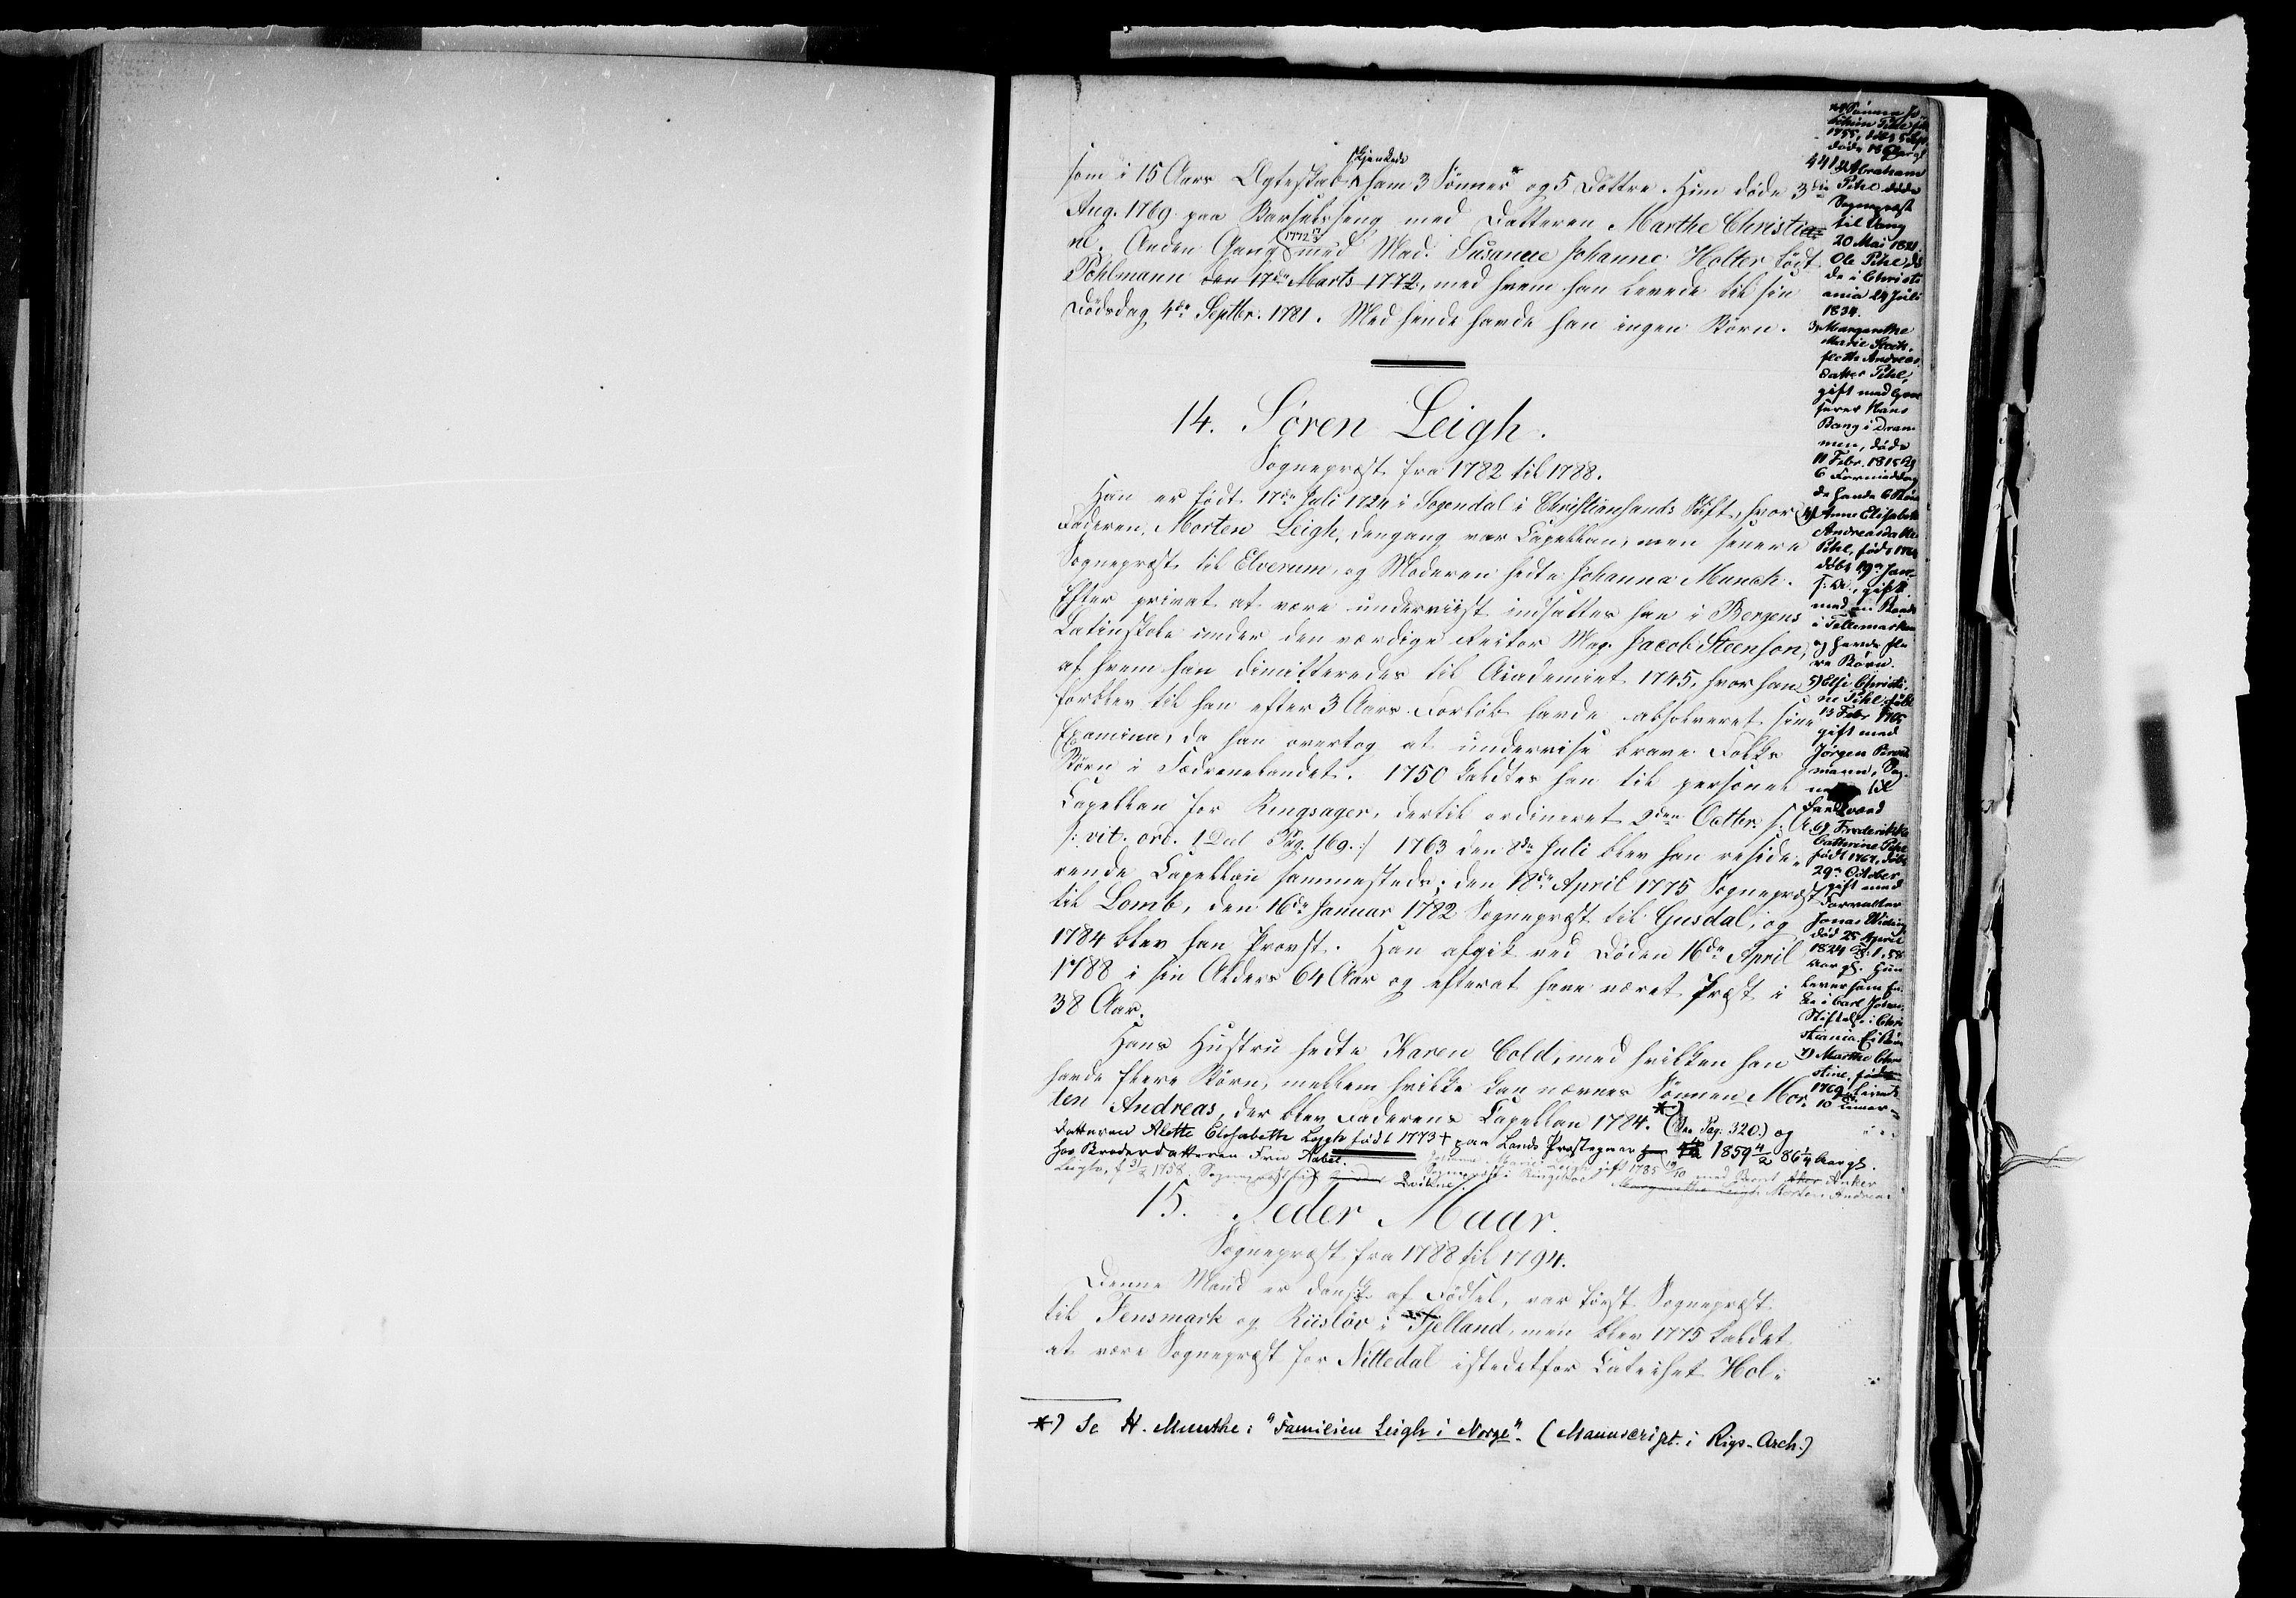 441
som i 15 Aars Ægteskab skjenkede ham 3 Sønner * og 5 Døttre. Hun døde 3die
Aug. 1769 paa Barselseng med Datteren Marthe Christia=
ne. Anden Gang (1772 17/3) med Mad. Susanne Johanne Holter født
Pohlmann den 17de Marts 1772, med hvem han levede til sin
Dødsdag 4de Septbr. 1781. Med hende havde han ingen Børn.
14. Søren Leigh.
Sognepræst fra 1782 til 1788.
Han er født 17de Juli 1724 i Sogendal i Christiansands Stift, hvor
Faderen, Morten Leigh, dengang var Capellan, men senere
Sognepræst til Elverum, og Moderen hedte Johanna Munch.
Efter privat at være underviist indsattes han i Bergens
Latinskole under den værdige Rector Mag. Jacob Steenson,
af hvem han dimitteredes til Academiet 1745, hvor han
forblev til han efter 3 Aars Forløb havde absolveret sine
Examina, da han overtog at undervise brave Folks
Børn i Fædrenelandet. 1750 kaldtes han til personel
Capellan for Ringsager, dertil ordineret 2den Octbr. s. A.
/: vit. ord. 1 Deel Pag. 169. :/ 1763 den 8de Juli blev han reside-
rende Capellan sammesteds; den 18de April 1775 Sognepræst
til Lomb, den 16de Januar 1782 Sognepræst til Gusdal, og
1784 blev han Provst. Han afgik ved Døden 16de April
1788 i sin Alders 64 Aar og efterat have været Præst i
38 Aar.
Hans Hustru hedte Karen Cold, med hvilken han
havde flere Børn, mellem hvilke kan nævnes Sønnen Mor-
ten Andreas, der blev Faderens Capellan 1784. *) (See Pag. 320.) og
Datteren Alette Elisabeth Leigh født 1773 + paa Lands Præstegaar 1859 4/2 86 1/4 Aar gl.
hos Broderdatteren Frue Aabel.
Leigh, f 31/2 1758, Sognepræst til Qvikne.
gift 1785 19/10 med Anker
Sognepræst i Ringebo Margarethe Leigh Morten Andreas
15. Peder Maar.
Sognepræst fra 1788 til 1794.
Denne Mand er dansk af Fødsel, var først Sognepræst
til Fensmark og Riisløv i Sjelland, men blev 1775 kaldet
at være Sognepræst for Nittedal istedetfor Catechet Hol-
*) Se H. Munthe: "Familien Leigh i Norge". (Manuscript i Rigs-Arch.)
1755, døbt 5 Sept
døde 18 Aar gl
2) Abraham
Pihl døde
Sognepræst
til Vang
20 Mai 1821.
Ole Pihl dø
de i Christi
ania 24 Juli
1834.
3) Margarethe
Marie
Andreas
datter Pihl,
gift med
Hans
Bang i Dram
men, døde
11 Febr. 1815
6 Formiddag
de havde 6 Børn
4) Anne Elisabeth
Andreasdatter
Pihl, født 1762
døbt 19de Jan.
s. A., gift
med en
i Tellemarken
og havde fle
re Børn.
5) Else Christi
ne Pihl, født
13 Febr 1765
gift med
Jørgen
mann, Sog.
til
6) Frederikke
Cathrine Pihl
født 1767, døbt
29de October
gift med
Forvalter
Jonas
død 25 April
1824
Aar gl. Hun
lever som En
ke i Carl Johans
Stiftelse i Chri
stiania.
7) Marthe Chri
stine, født
1769
10